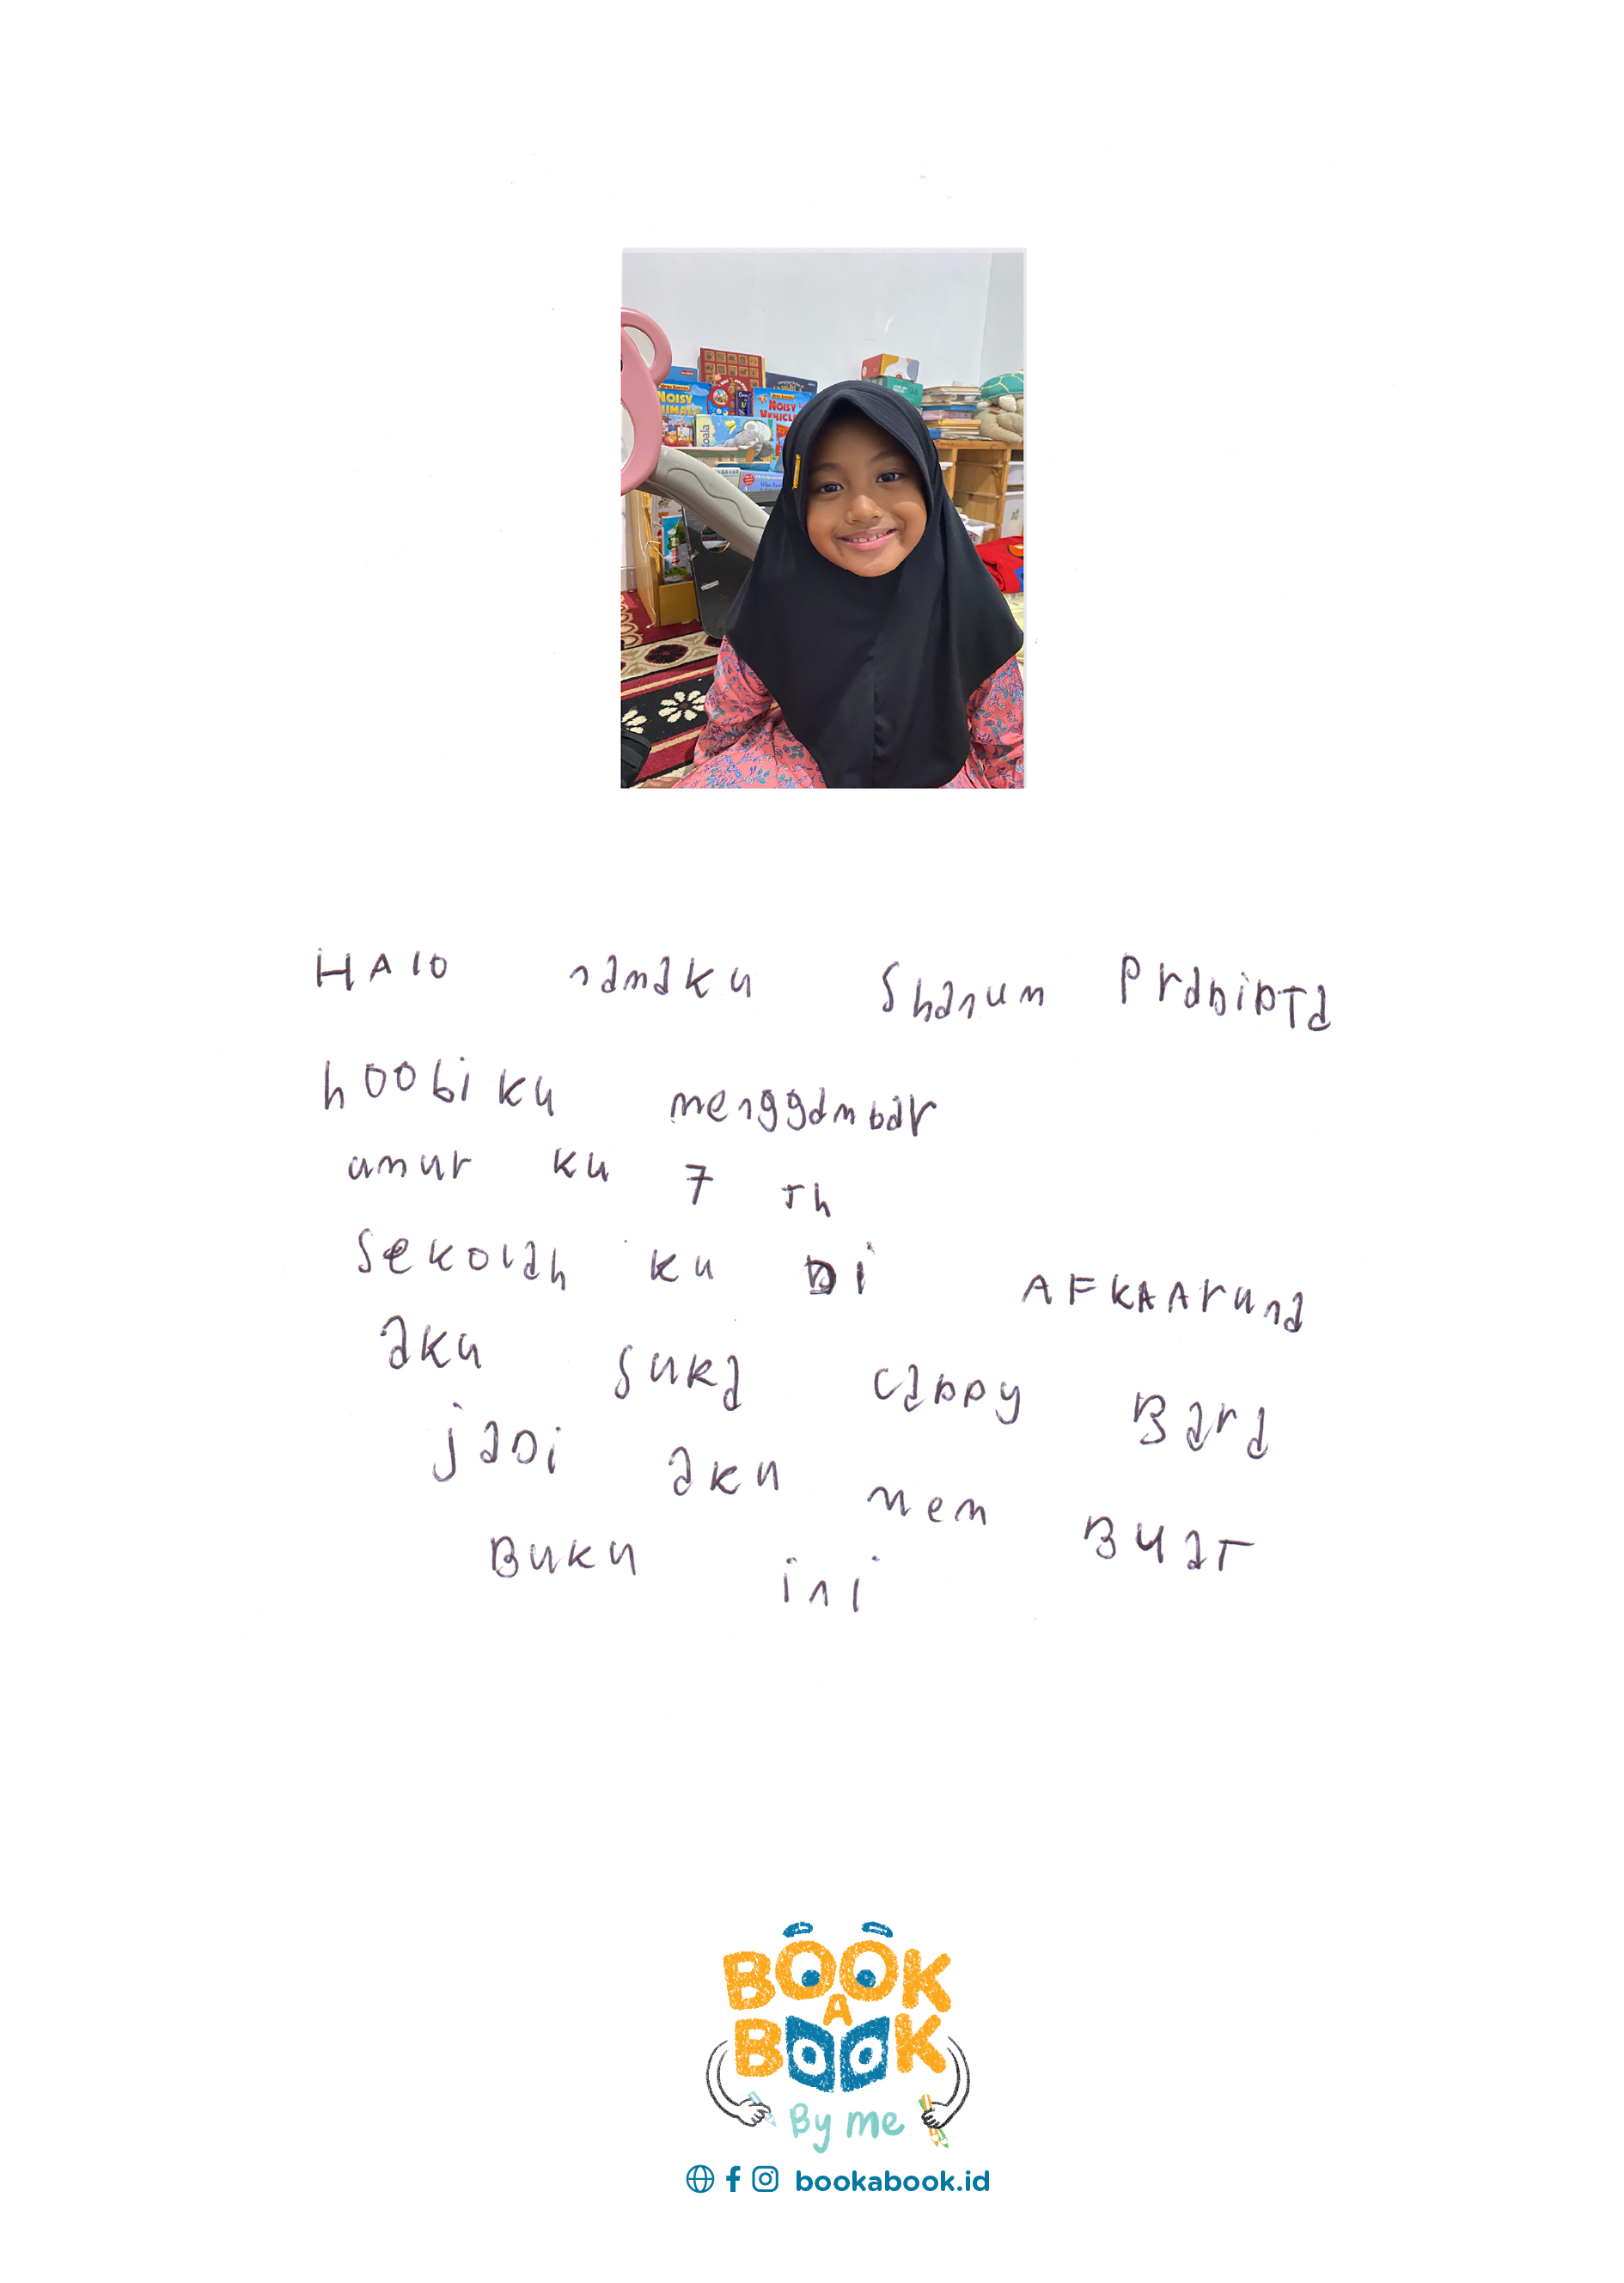 NOISY
NOISY
HALO namaku Shanum Pradipta
hoobiku menggambar
umur ku 7 Th
Sekolah ku Di AFKAAruna
aku suka cappy Bara
jaDi aku mem BuaT
Buku ini
BOOK
A
BOOK
By me
bookabook.id